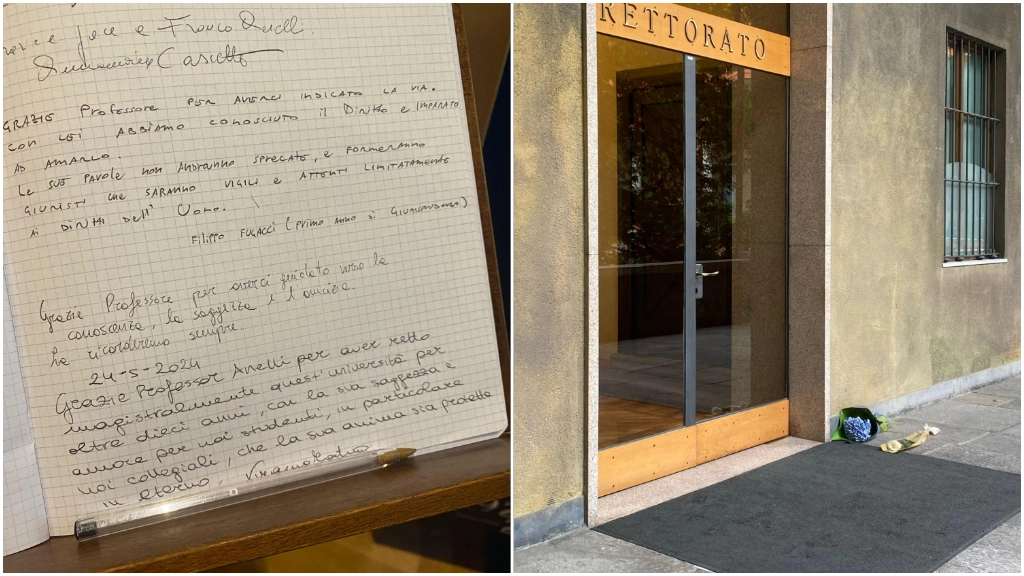 pace a Franco Anelli.
GRAZIE Professore PER AVERCI INDICATO LA VIA.
CON LEI ABBIAMO CONOSCIUTO il Diritto e IMPARATO
AD AMARLO.
Le SUE PAROLE non Andranno sprecate, e FORMERANNO
GIURISTI che SARANNO VIGILI e ATTENTI LIMITATAMENTE
AI DIRITTI dell' Uomo.
Filippo FUGACCI (primo anno di Giurisprudenza)
Grazie Professore per averci guidato verso la
conoscenza, la saggezza e l'amicizia.
La ricorderemo sempre.
24-5-2024
Grazie Professor Anelli per aver retto
magistralmente quest'università per
oltre dieci anni, con la sua saggezza e
amore per noi studenti, in particolare
noi collegiali, che la sua anima sia protetta
in eterno,
RETTORATO